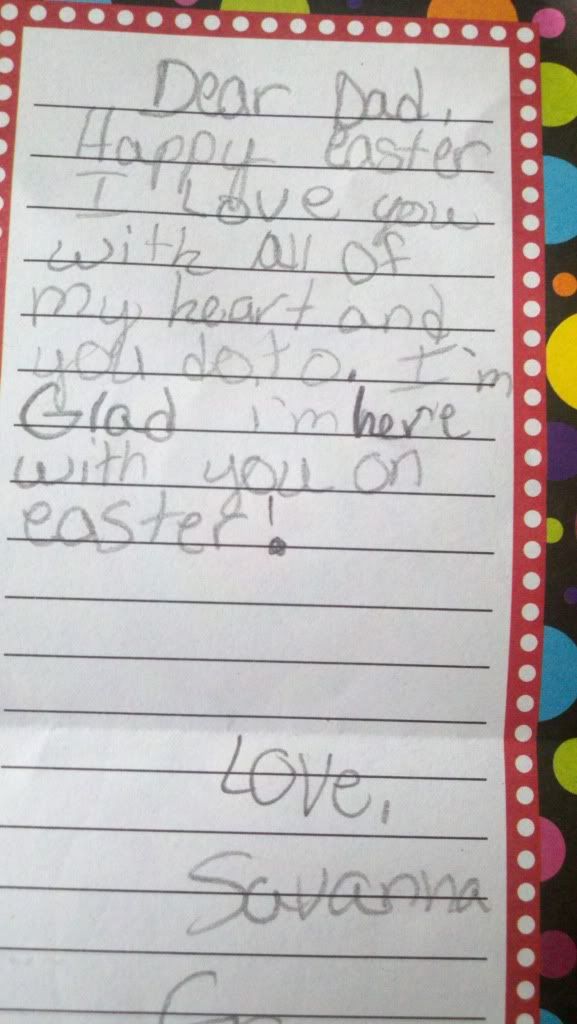 Dear Dad,
Happy easter
I Love you
with all of
my heart and
you do to. I'm
Glad i'm here
with you on
easter!
Love,
Savanna